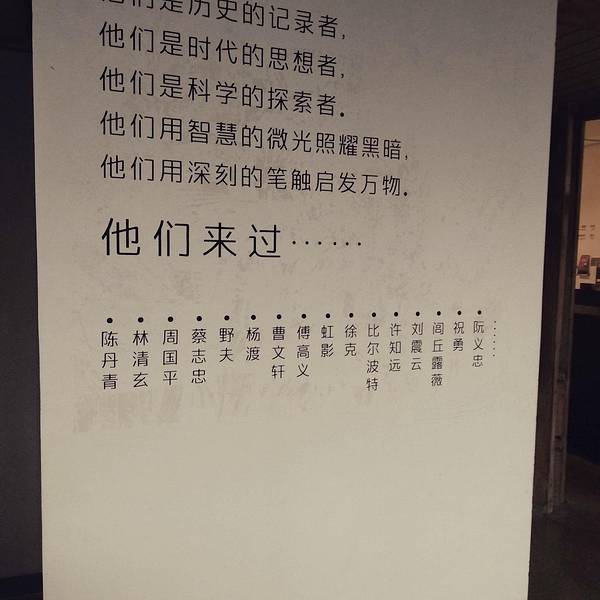 他们是历史的记录者,
他们是时代的思想者,
他们是科学的探索者.
他们用智慧的微光照耀黑暗,
他们用深刻的笔触启发万物.
他们来过……
•陈丹青
•林清玄
•周国平
•蔡志忠
•野夫
•杨渡
•曹文轩
•傅高义
•虹影
•徐克
•比尔波特
•许知远
•刘震云
•闾丘露薇
•祝勇
•阮义忠
……